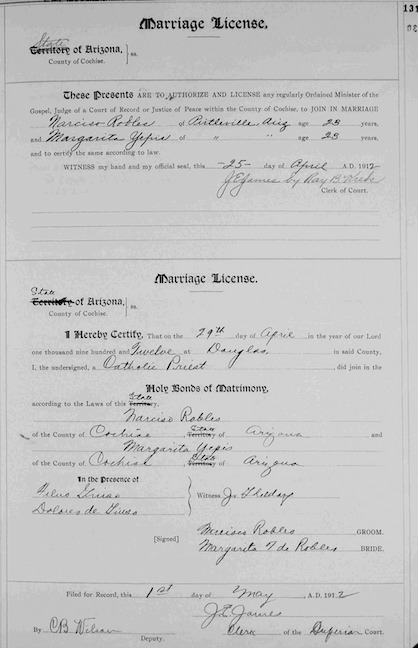 131
Marriage License,
State
Territory of Arizona, } ss.
County of Cochise.
These Presents ARE TO AUTHORIZE AND LICENSE any regularly Ordained Minister of the
Gospel, Judge of a Court of Record or Justice of Peace within the County of Cochise, to JOIN IN MARRIAGE
Narciso Robles of Pirtleville, Ariz age 23 years,
and Margarita Yepis of " " age 23 years,
and to certify the same according to law.
WITNESS my hand and my official seal, this -25- day of April A.D. 1912
J.E. James by Ray B.
Clerk of Court.
Marriage License.
State
Territory of Arizona, } ss.
County of Cochise.
I Hereby Certify, That on the 29th day of April in the year of our Lord
one thousand nine hundred and Twelve at Douglas, in said County,
I, the undersigned, a Catholic Priest did join in the
Holy Bonds of Matrimony,
State
according to the Laws of this Territory,
Narciso Robles
of the County of Cochise State Territory of Arizona and
Margarita Yepis
of the County of Cochise State Territory of Arizona
In the Presence of
Witness
Dolores de
[Signed] Robles GROOM.
Margarita F de Robles BRIDE.
Filed for Record, this 1st day of May, A.D. 1912
J.E. James
By C.B. Wilson Clerk of the Superior Court.
Deputy.